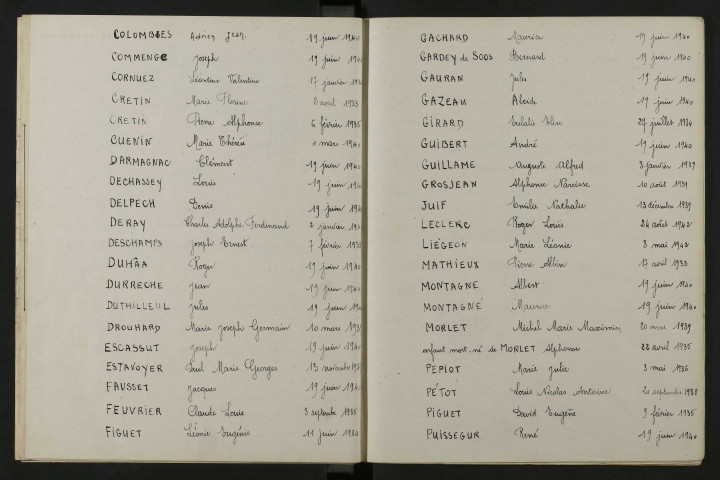 COLOMBIES Adrien Jean 19 juin 1940
COMMENGE Joseph 19 juin 194
CORNUEZ Léontine Valentine 17 janvier 194
CRETIN Marie Florine 2 août 1933
CRETIN Pierre Alphonse 6 février 1935
CUENIN Marie Thérèse mars 1940
DARMAGNAC Clément 19 juin 1940
DECHASSEY Louis 19 juin 194
DELPECH Denis 19 juin 194
DERAY Charles Adolphe Ferdinand 2 janvier 194
DESCHAMPS Joseph Ernest 7 février 193
DUHÂA Roger 19 juin 1940
DURRECHE Jean 19 juin 1940
DUTHILLEUL Jules 19 juin 194
DROUHARD Marie Joseph Germain 10 mars 193
ESCASSUT Joseph 19 juin 1940
ESTAVOYER Paul Marie Georges 13 novembre
FAUSSET Jacques 19 juin 1940
FEUVRIER Claude Louis 3 septembre 1935
FIGUET Léonie Eugénie 11 juin 1934
GACHARD Maurice 19 juin 1940
GARDEY de SOOS Bernard 19 juin 1940
GAURAN Jules 19 juin 1940
GAZEAU Alcide 19 juin 1940
GIRARD 27 juillet 1934
GUIBERT André 19 juin 1940
GUILLAME Auguste Alfred 3 janvier 1937
GROSJEAN Alphonse Narcisse 10 août 1931
JUIF Emilie Nathalie 13 décembre 1939
LECLERC Roger Louis 24 août 1942
LIÉGEON Marie Léonie 8 mai 1942
MATHIEUX Pierre Albin 17 avril 1933
MONTAGNE Albert 19 juin 1940
MONTAGNÉ Maurice 19 juin 1940
MORLET Michel Marie Maximin 20 mars 1939
enfant mort-né de MORLET Alphonse 22 avril 1935
PEPIOT Marie Julie 3 mai 1936
PÉTOT Louis Nicolas Antoine 20 septembre 1938
PIGUET David Eugène 9 février 1935
PUISSEGUR René 19 juin 1940